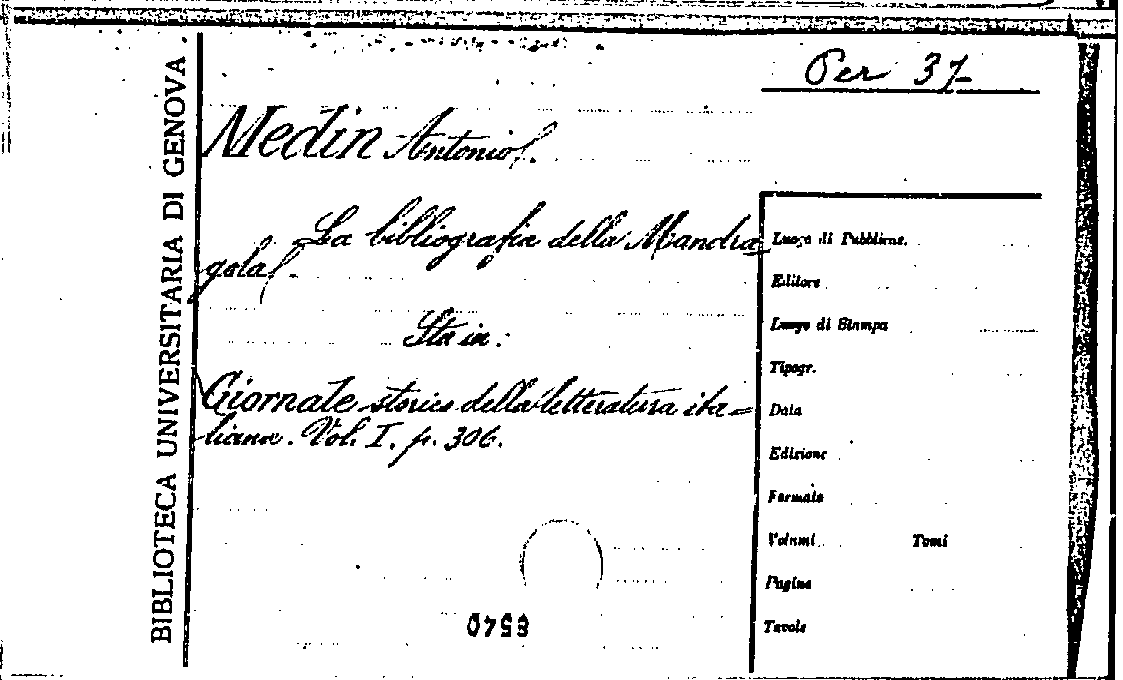 BIBLIOTECA UNIVERSITARIA DI GENOVA
Per 37
Medin Antonio.
La bibliografia della Mandra
gola.
Sta in:
Giornale storico della letteratura ita=
liana. Vol. I. p. 306.
Luogo di Pubblicaz.
Editore
Luogo di Stampa
Tipogr.
Data
Edizione
Formato
Volumi Tomi
Pagine
Tavole